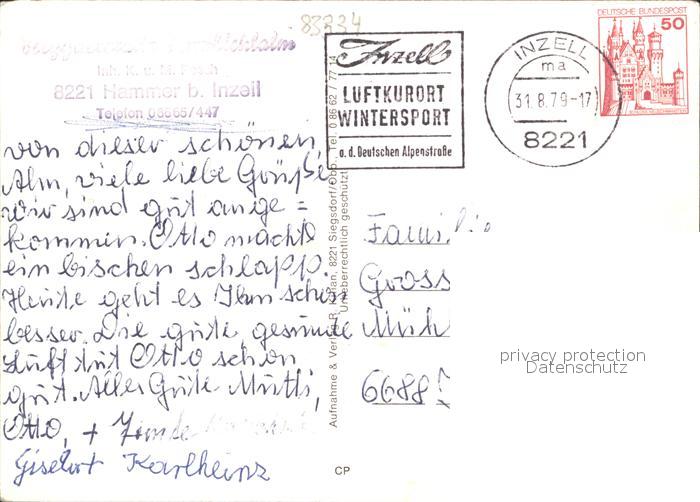 83334
Inh. K. u. M.
8221 Hammer b. Inzell
Telefon 08665/447
von dieser schönen
Alm, viele liebe Grüße
wir sind gut ange =
kommen. Otto macht
ein bischen schlapp.
Heute geht es Ihm schon
besser. Die gute, gesunde
Luft tut Otto schon
gut. Alles Gute Mutti,
Otto, +
Giselert Karlheinz
Aufnahme & Verlag R. Kilian, 8221 Siegsdorf/Obb., Tel. 0 86 62 / 77 14
Urheberrechtlich geschützt
CP
Inzell
LUFTKURORT
WINTERSPORT
a. d. Deutschen Alpenstraße
INZELL
ma
31.8.79-17
8221
DEUTSCHE BUNDESPOST
50
Familie
Gross
Müh
6688
privacy protection
Datenschutz